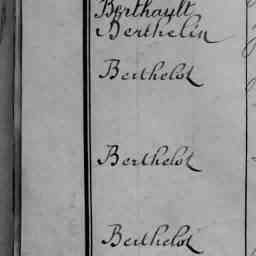 Berthault
Berthelin
Berthelot
Berthelot
Berthelot